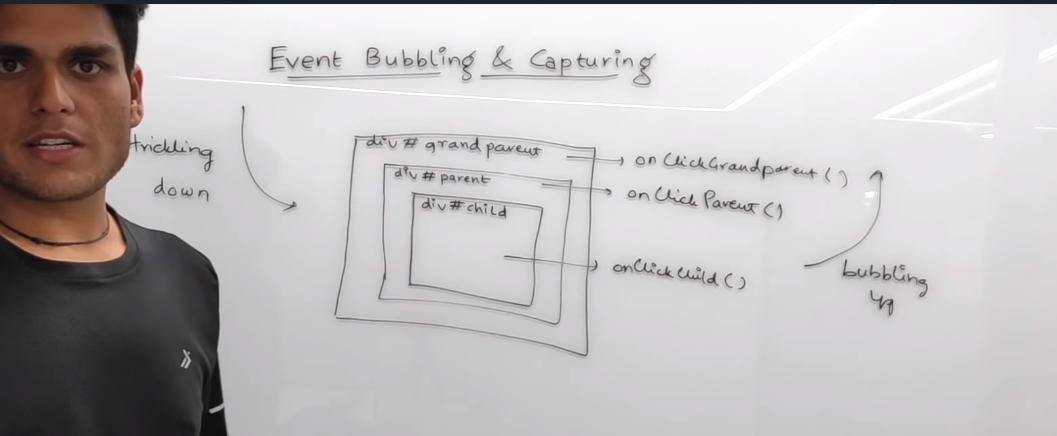 Event Bubbling & Capturing
trickling
down
div # grandparent
div # parent
div # child
onClickGrandparent ( )
onClickParent ( )
onClickChild ( )
bubbling
up